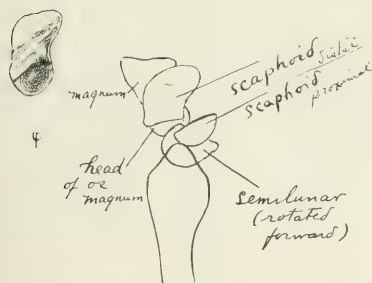 scaphoid distal
scaphoid proximal
magnum
head
of os
magnum
semilunar
(rotated
forward)
4